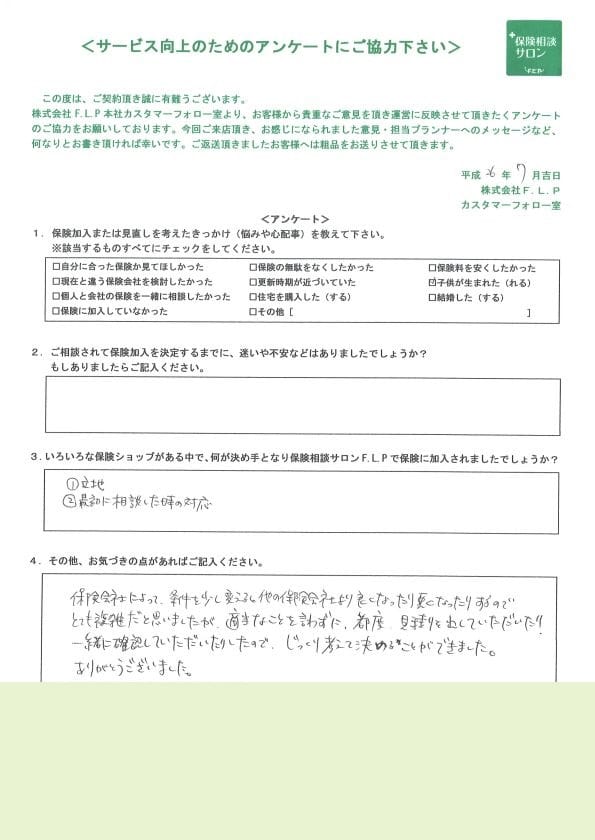 ＜サービス向上のためのアンケートにご協力下さい＞
保険相談
サロン
F.L.P
この度は、ご契約頂き誠に有難うございます。
株式会社Ｆ.Ｌ.Ｐ本社カスタマーフォロー室より、お客様から貴重なご意見を頂き運営に反映させて頂きたくアンケート
のご協力をお願いしております。今回ご来店頂き、お感じになられました意見・担当プランナーへのメッセージなど、
何なりとお書き頂ければ幸いです。ご返送頂きましたお客様へは粗品をお送りさせて頂きます。
平成 26 年 7 月吉日
株式会社Ｆ.Ｌ.Ｐ
カスタマーフォロー室
＜アンケート＞
１．保険加入または見直しを考えたきっかけ（悩みや心配事）を教えて下さい。
※該当するものすべてにチェックをしてください。
□自分に合った保険か見てほしかった □保険の無駄をなくしたかった □保険料を安くしたかった
□現在と違う保険会社を検討したかった □更新時期が近づいていた ☑子供が生まれた（れる）
□個人と会社の保険を一緒に相談したかった □住宅を購入した（する） □結婚した（する）
□保険に加入していなかった □その他［ ］
２．ご相談されて保険加入を決定するまでに、迷いや不安などはありましたでしょうか？
もしありましたらご記入ください。
３．いろいろな保険ショップがある中で、何が決め手となり保険相談サロンＦ.Ｌ.Ｐで保険に加入されましたでしょうか？
①立地
②最初に相談した時の対応
４．その他、お気づきの点があればご記入ください。
保険会社によって、条件を少し変えると他の保険会社より良くなったり悪くなったりするので
とても複雑だと思いましたが、適当なことを言わずに、都度、見積りを出していただいたり
一緒に確認していただいたりしたので、じっくり考えて決めることができました。
ありがとうございました。